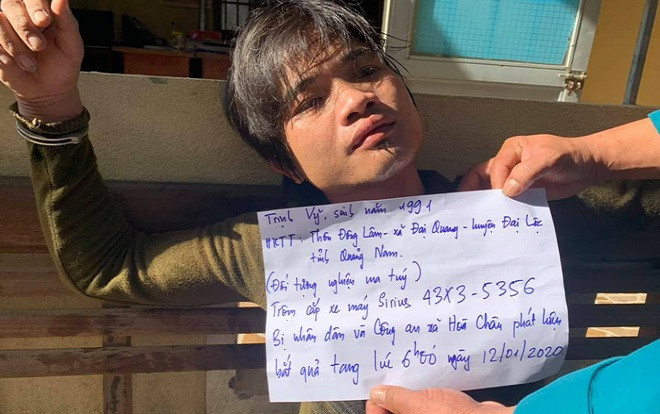 Trịnh Vỹ, sinh năm 1991
HKTT: Thôn Đông Lâm - xã Đại Quang - huyện Đại Lộc
tỉnh Quảng Nam.
(Đối tượng nghiện ma túy)
Trộm cắp xe máy Sirius 43X3-5356
Bị nhân dân và Công an xã Hoà Châu phát hiện
bắt quả tang lúc 6h00 ngày 12/01/2020